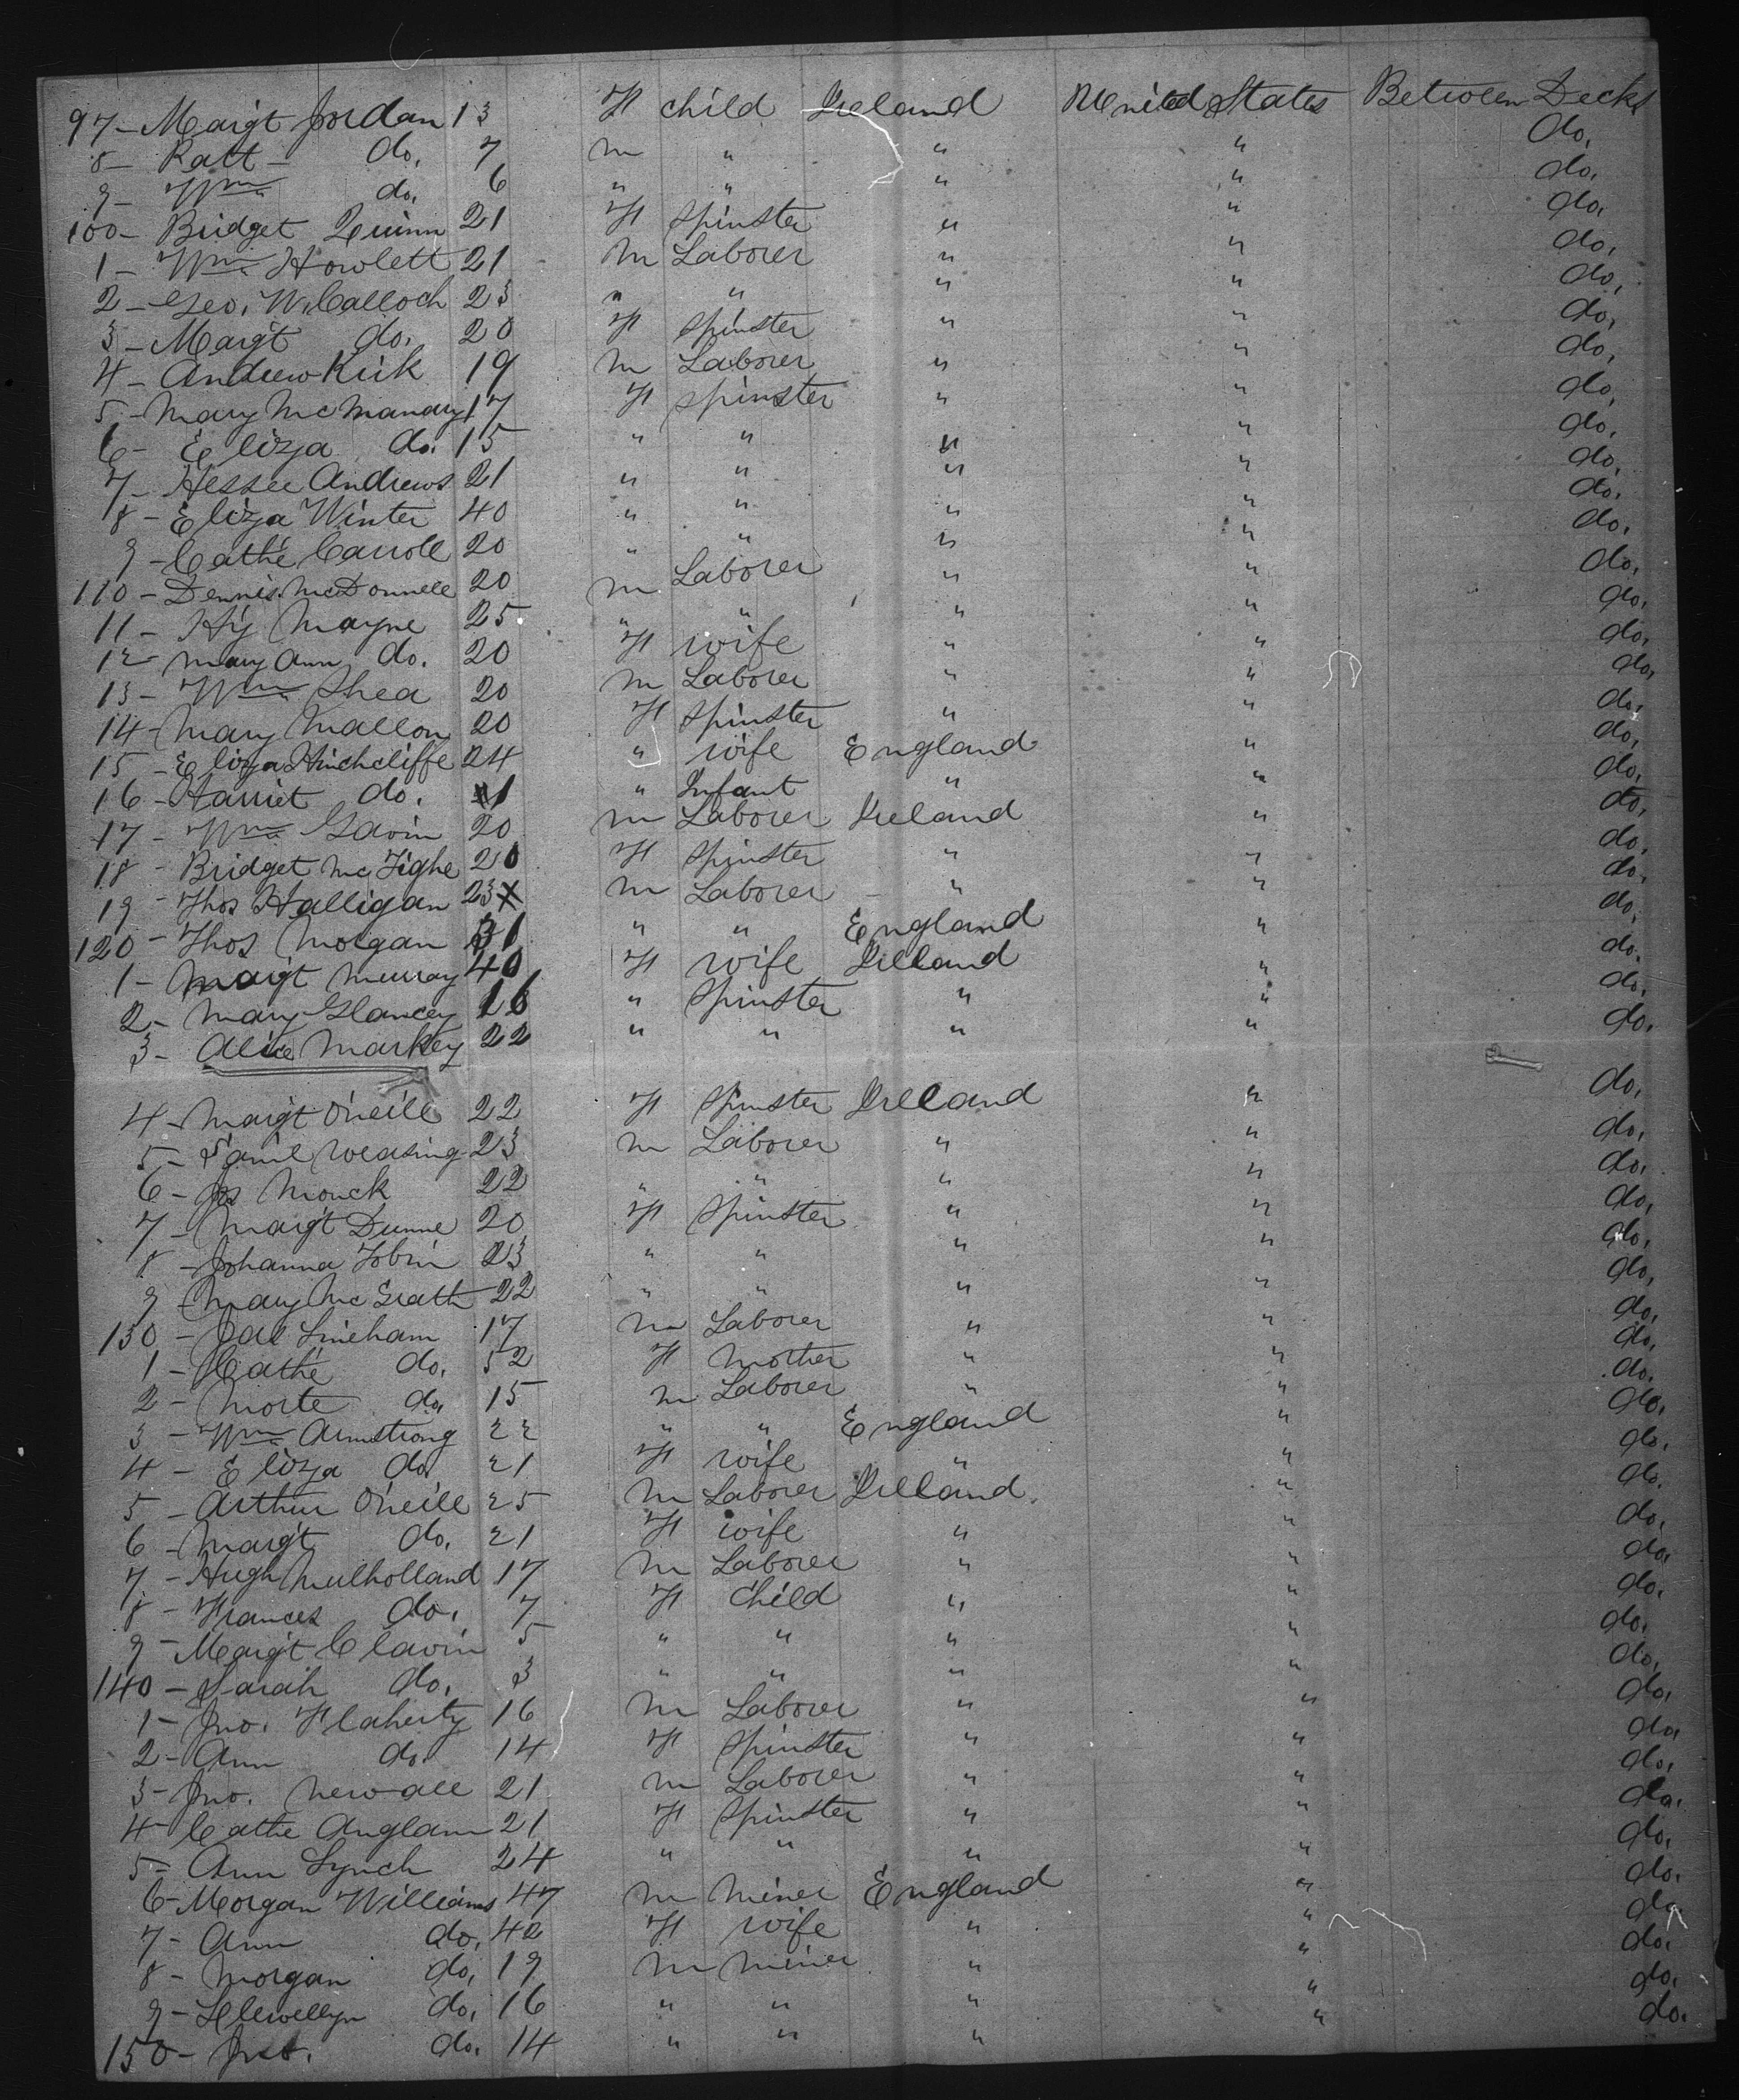 97- Margt Jordan 13 F child Ireland United States Between Decks
8- Patt- do. 7 m " " " do.
9- Wm do. 6 " " " " do.
100- Bridget Quinn 21 F Spinster " " do.
1- Wm Howlett 21 m Laborer " " do.
2- Geo. McCalloch 23 " " " " do.
3- Margt do. 20 F Spinster " " do.
4- Andrew Kirk 19 m Laborer " " do.
5- Mary McManary 17 F Spinster " " do.
6- Eliza do. 15 " " " " do.
7- Hessee Andrews 21 " " " " do.
8- Eliza Winter 40 " " " " do.
9- Cathe Carroll 20 " " " " do.
110- Dennis McDonnell 20 m Laborer " " do.
11- Hy Mayne 25 " " " " do.
12- Mary Ann do. 20 F wife " " do.
13- Wm Shea 20 m Laborer " " do.
14- Mary Mallon 20 F Spinster " " do.
15- Eliza Hinchcliffe 24 " wife England " do.
16- Harriet do. 1 " Infant " " do.
17- Wm Gavin 20 m Laborer Ireland " do.
18- Bridget McTighe 20 F Spinster " " do.
19- Thos Halligan 23 m Laborer " " do.
120- Thos Morgan 31 " " England " do.
1- Margt Murray 40 F wife Ireland " do.
2- Mary Glancey 16 " Spinster " " do.
3- Alice Markey 22 " " " " do.
4- Margt O'Neill 22 F Spinster Ireland " do.
5- Saml Weasing 23 m Laborer " " do.
6- Jos Monck 22 " " " " do.
7- Margt Dunne 20 F Spinster " " do.
8- Johanna Tobin 23 " " " " do.
9- Mary McGrath 22 " " " " do.
130- Jas Lineham 17 m Laborer " " do.
1- Cathe do. 52 F Mother " " do.
2- Morte do. 15 m Laborer " " do.
3- Wm Armstrong 22 " " England " do.
4- Eliza do. 21 F wife " " do.
5- Arthur O'Neill 25 m Laborer Ireland " do.
6- Margt do. 21 F wife " " do.
7- Hugh Mulholland 17 m Laborer " " do.
8- Frances do. 7 F Child " " do.
9- Margt Clavin 5 " " " " do.
140- Sarah do. 3 " " " " do.
1- Jno. Flaherty 16 m Laborer " " do.
2- Ann do. 14 F Spinster " " do.
3- Jno. Newall 21 m Laborer " " do.
4- Cathe Anglam 21 F Spinster " " do.
5- Ann Lynch 24 " " " " do.
6- Morgan Williams 47 m Miner England " do.
7- Ann do. 42 F wife " " do.
8- Morgan do. 19 m Miner " " do.
9- Llewellyn do. 16 " " " " do.
150- Jno. do. 14 " " " " do.